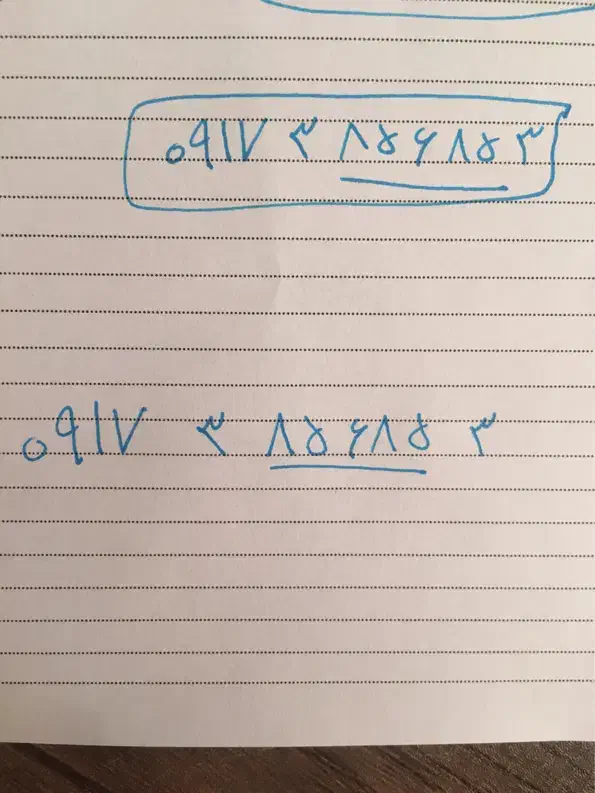 ۰۹۱۷ ۳ ۸۵۶۸۵ ۳
۰۹۱۷ ۳ ۸۵۶۸۵ ۳